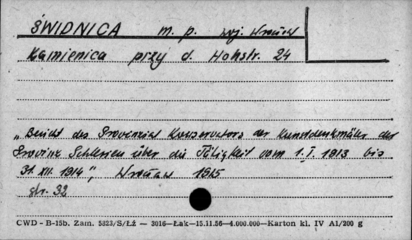 ŚWIDNICA m. p. woj. Wrocław
Kamienica przy d. Hohstr. 24
"Bericht des Provinzial Konservators der Kunstdenkmäler der
Provinz Schlesien über die Tätigkeit vom 1.I.1913 bis
31.XII.1914", Wrocław 1915
str. 32
CWD - B-15b. Zam. 5323/S/Łż — 3016—Łak—15.11.56—4.000.000—Karton kl. IV A1/200 g